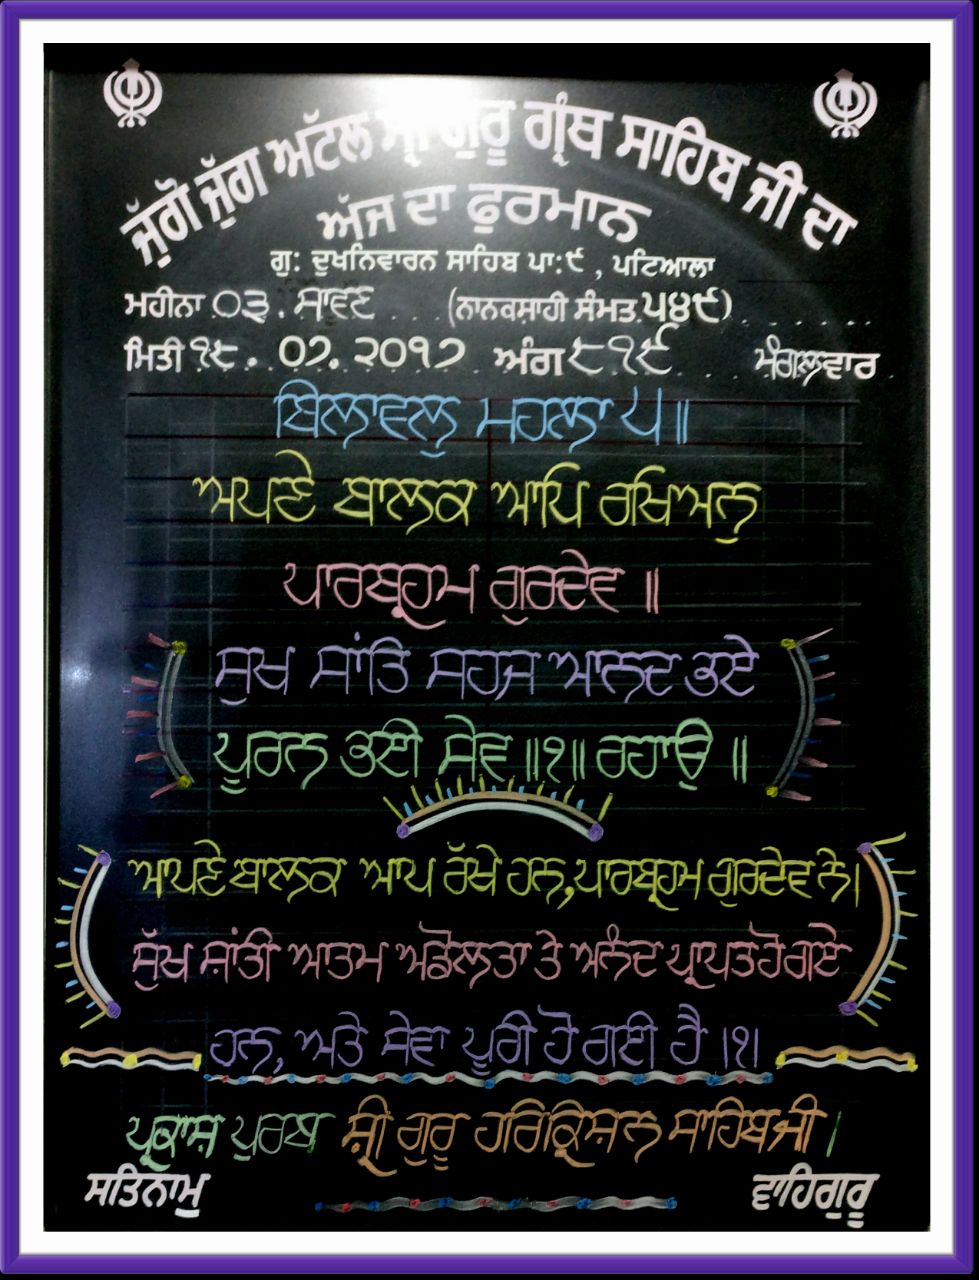 ਜੁੱਗੋ ਜੁੱਗ ਅੱਟਲ ਸ੍ਰੀ ਗੁਰੂ ਗ੍ਰੰਥ ਸਾਹਿਬ ਜੀ ਦਾ
ਅੱਜ ਦਾ ਫੁਰਮਾਨ
ਗੁ: ਦੁਖਨਿਵਾਰਨ ਸਾਹਿਬ ਪਾ:੯ , ਪਟਿਆਲਾ
ਮਹੀਨਾ ੦੩. ਸਾਵਣ (ਨਾਨਕਸ਼ਾਹੀ ਸੰਮਤ ੫੪੯)
ਮਿਤੀ ੧੮. ੦੭. ੨੦੧੭ ਅੰਗ ੮੧੯ ਮੰਗਲਵਾਰ
ਬਿਲਾਵਲੁ ਮਹਲਾ ੫॥
ਅਪਣੇ ਬਾਲਕ ਆਪਿ ਰਖਿਅਨੁ
ਪਾਰਬ੍ਰਹਮ ਗੁਰਦੇਵ ॥
ਸੁਖ ਸਾਂਤਿ ਸਹਜ ਆਨਦ ਭਏ
ਪੂਰਨ ਭਈ ਸੇਵ ॥੧॥ ਰਹਾਉ ॥
ਆਪਣੇ ਬਾਲਕ ਆਪ ਰੱਖੇ ਹਨ,ਪਾਰਬ੍ਰਹਮ ਗੁਰਦੇਵ ਨੇ।
ਸੁੱਖ ਸ਼ਾਂਤੀ ਆਤਮ ਅਡੋਲਤਾ ਤੇ ਅਨੰਦ ਪ੍ਰਾਪਤ ਹੋ ਗਏ
ਹਨ, ਅਤੇ ਸੇਵਾ ਪੂਰੀ ਹੋ ਗਈ ਹੈ ।੧।
ਪ੍ਰਕਾਸ਼ ਪੁਰਬ ਸ਼੍ਰੀ ਗੁਰੂ ਹਰਿਕ੍ਰਿਸ਼ਨ ਸਾਹਿਬ ਜੀ।
ਸਤਿਨਾਮੁ ਵਾਹਿਗੁਰੂ